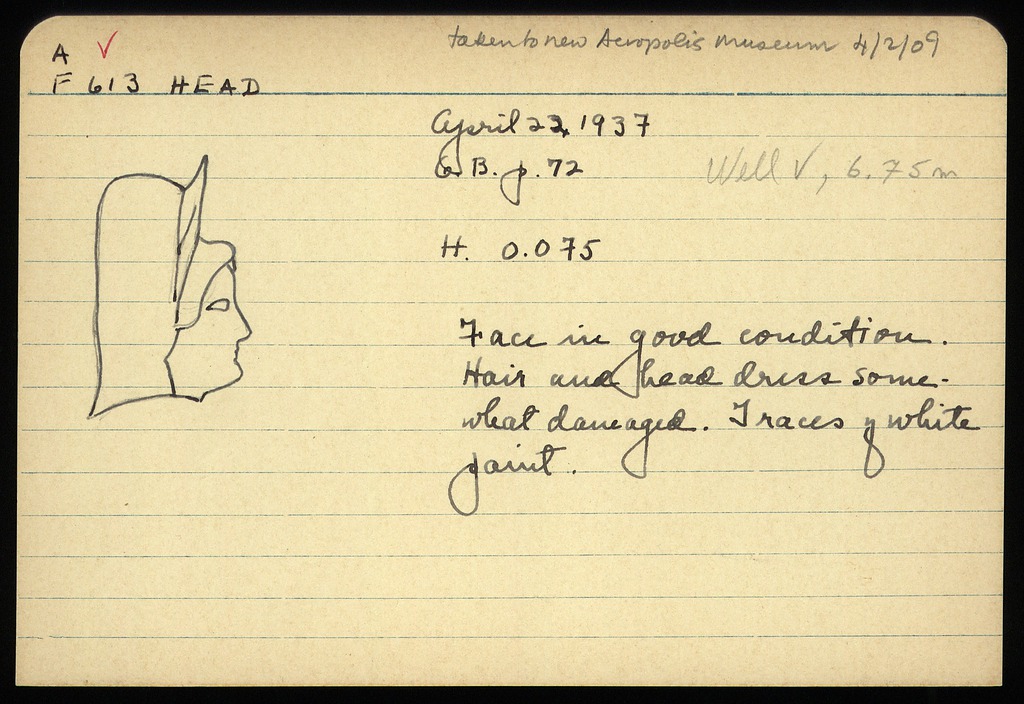 taken to new Acropolis Museum 4/2/09
A ✓
F 613 HEAD
April 23, 1937
B. p. 72
Well V, 6.75m
H. 0.075
Face in good condition.
Hair and head dress some-
what damaged. Traces of white
paint.